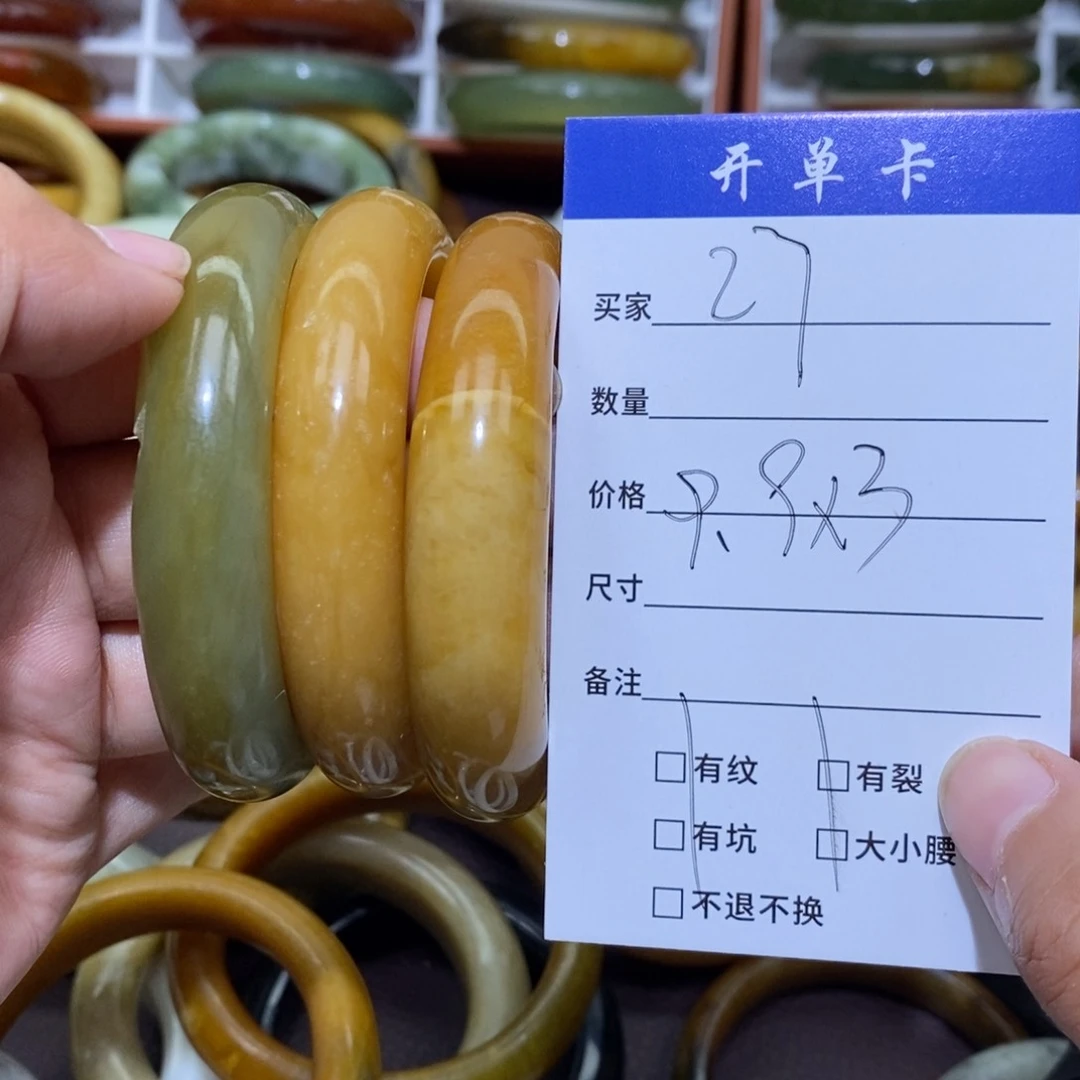 开单卡
买家 27
数量
价格 9.9x3
尺寸
备注
□有纹 □有裂
□有坑 □大小腰
□不退不换